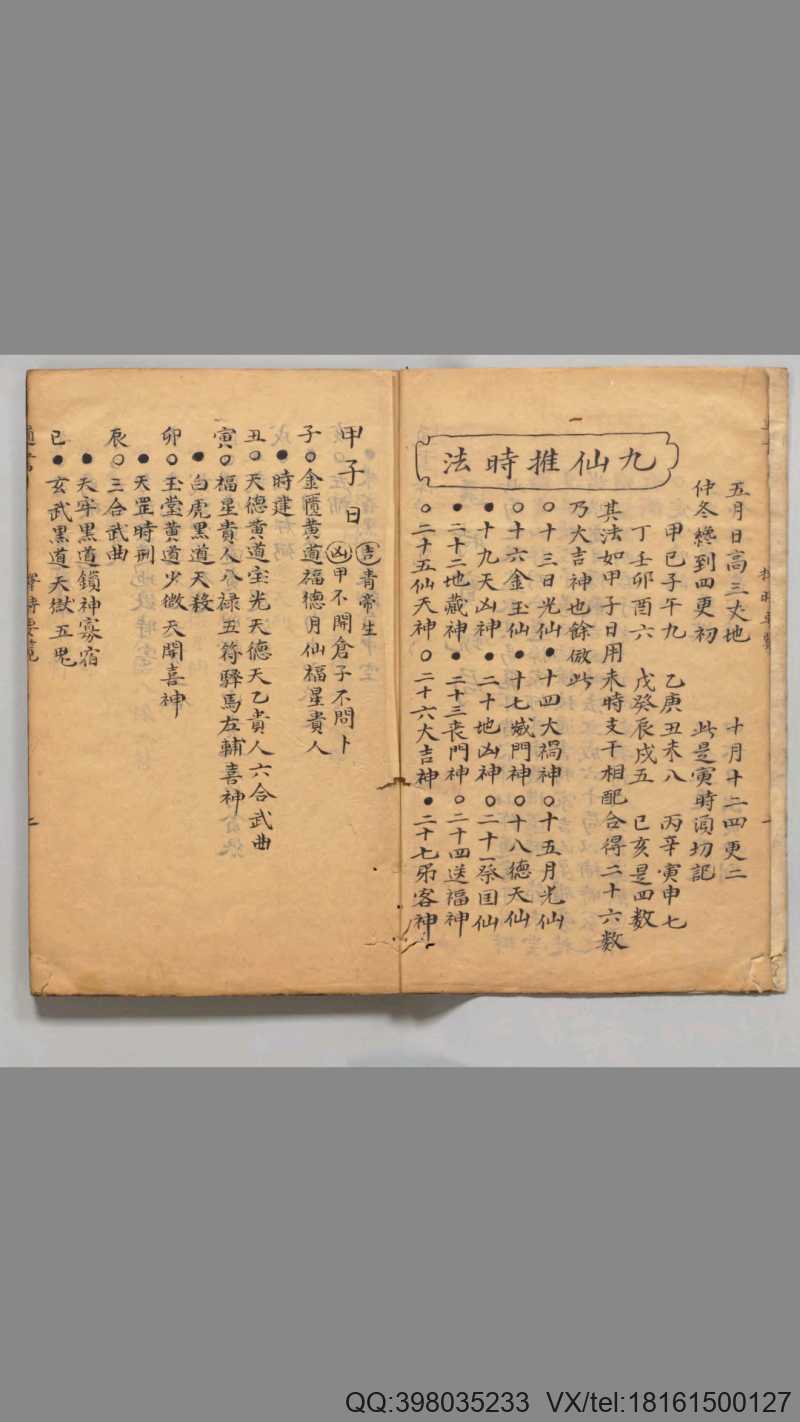 五月日高三丈地　十月十二四更二
仲冬纔到四更初　此是寅時須切記
九仙推時法
甲己子午九　乙庚丑未八　丙辛寅申七
丁壬卯酉六　戊癸辰戌五　巳亥是四數
其法如甲子日用未時支干相配合得二十六數
乃大吉神也餘倣此
○十三日光仙●十四大禍神○十五月光仙
○十六金玉仙●十七㓕門神○十八德天仙
●十九天凶神●二十地凶神○二十一祭国仙
●二十二地藏神●二十三丧門神○二十四送福神
○二十五仙天神○二十六大吉神●二十七弔客神
甲子日
吉 青帝生
凶 甲不開倉子不問卜
子○金匱黄道福德月仙福星貴人
●時建
丑○天德黄道宝光天德天乙貴人六合武曲
寅○福星貴人八禄五符驛馬左輔喜神
●白虎黑道天殺
卯○玉堂黄道少微天開喜神
●天罡時刑
辰○三合武曲
●天牢黑道鎖神寡宿
巳●玄武黑道天獄五鬼
QQ:398035233 VX/tel:18161500127